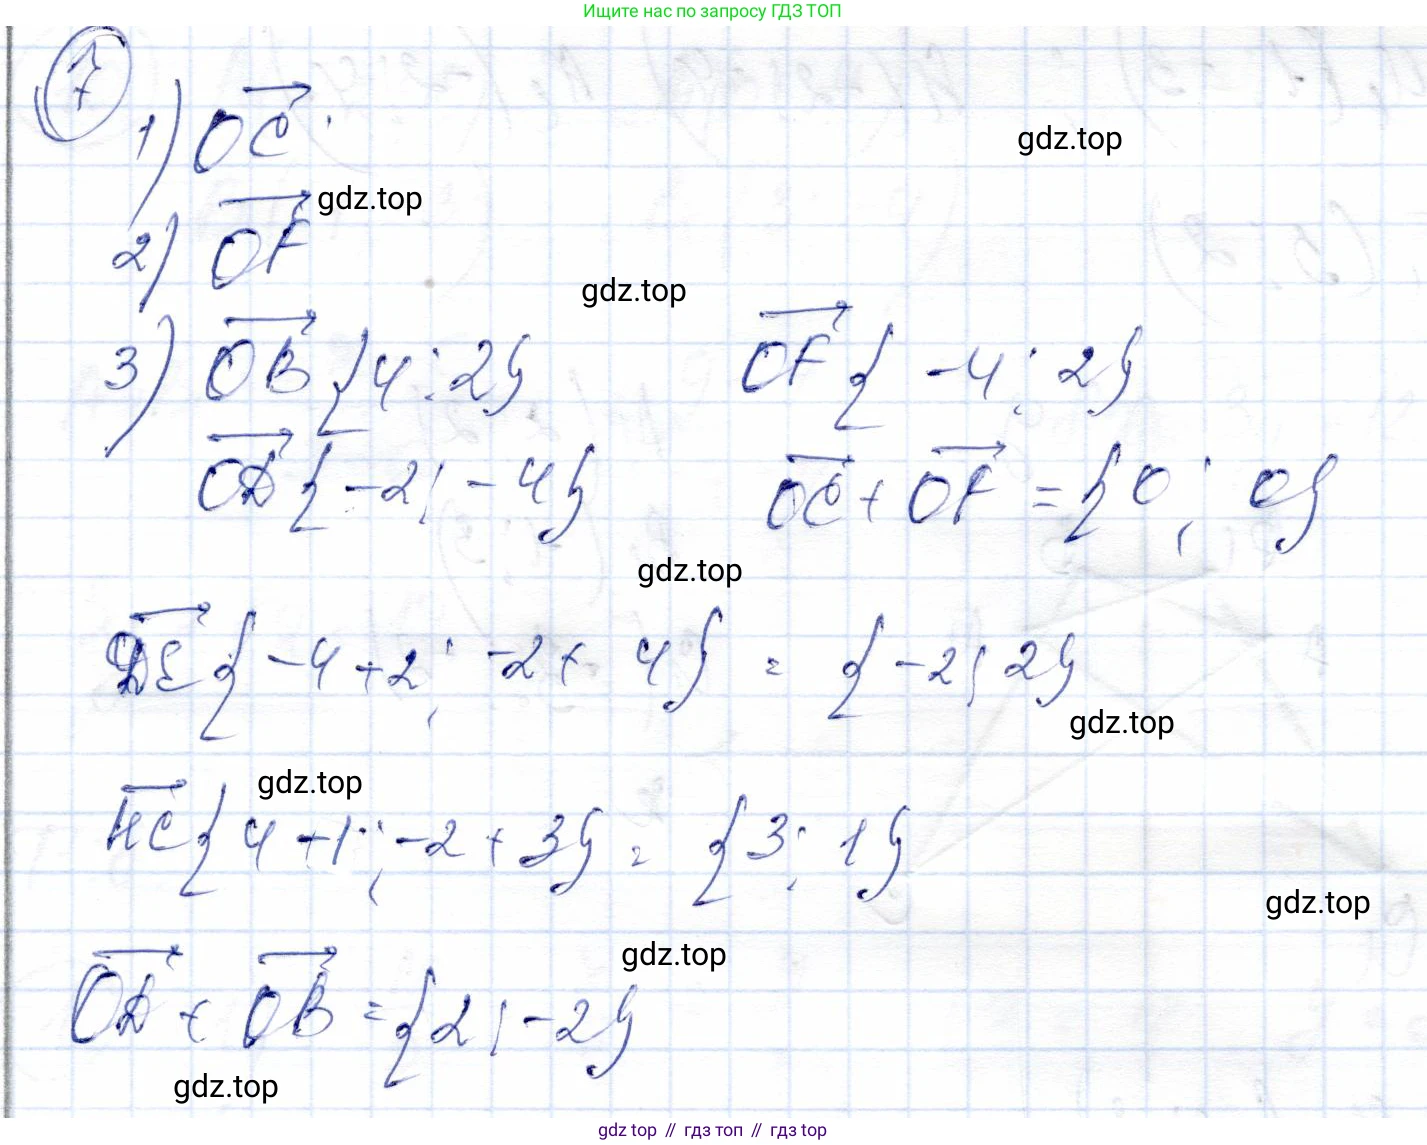 Ищите нас по запросу ГДЗ ТОП
7
1) OC
gdz.top
gdz.top
2) OF
gdz.top
3) OB {4; 2} OF {-4; 2}
OD {-2; -4} OC + OF = {0; 0}
gdz.top
DE {-4+2; -2+4} = {-2; 2}
gdz.top
gdz.top
HC {4+1; -2+3} = {3; 1}
gdz.top
gdz.top
OD + OB = {2; -2}
gdz.top
gdz top // гдз топ // гдз top